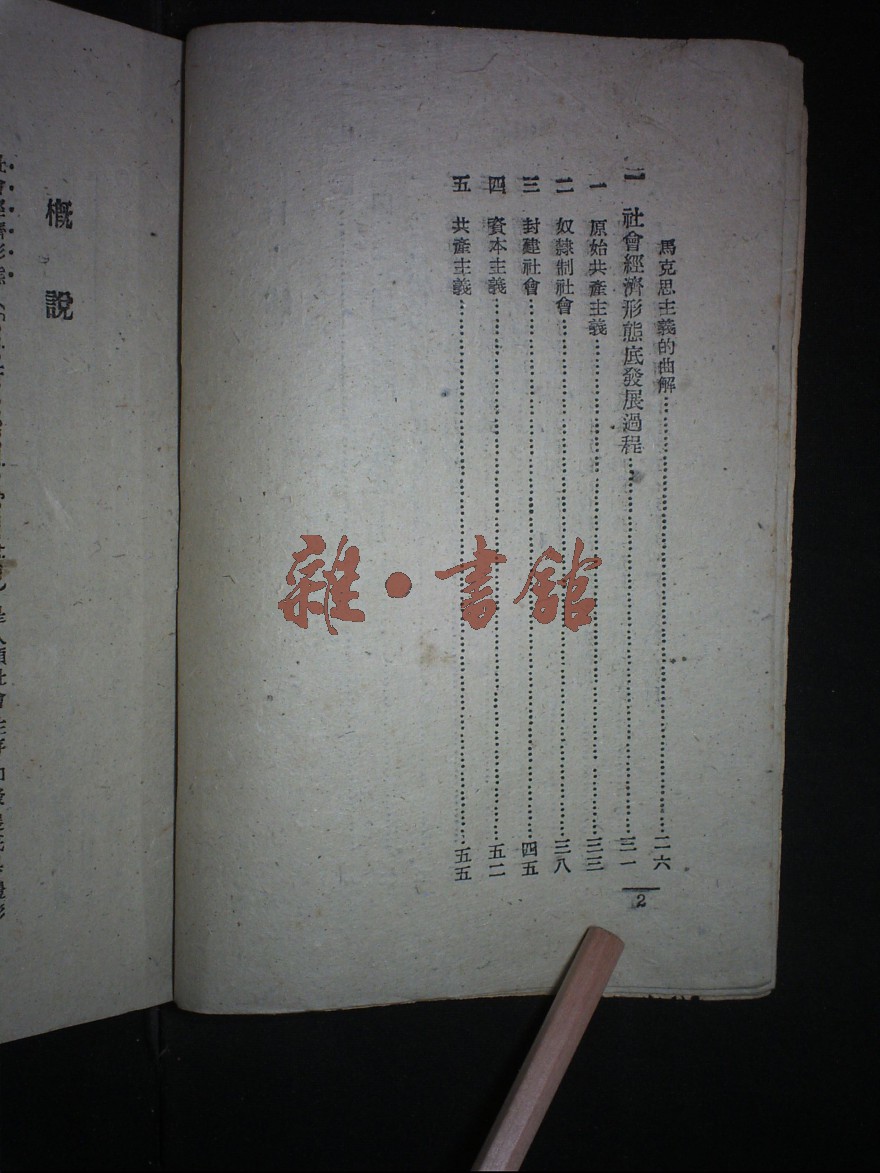 馬克思主義的曲解……二六
二 社會經濟形態底發展過程……三一
一 原始共產主義……三三
二 奴隸制社會……三八
三 封建社會……四五
四 資本主義……五二
五 共產主義……五五
2
雜·書館
概說
社會經濟形態